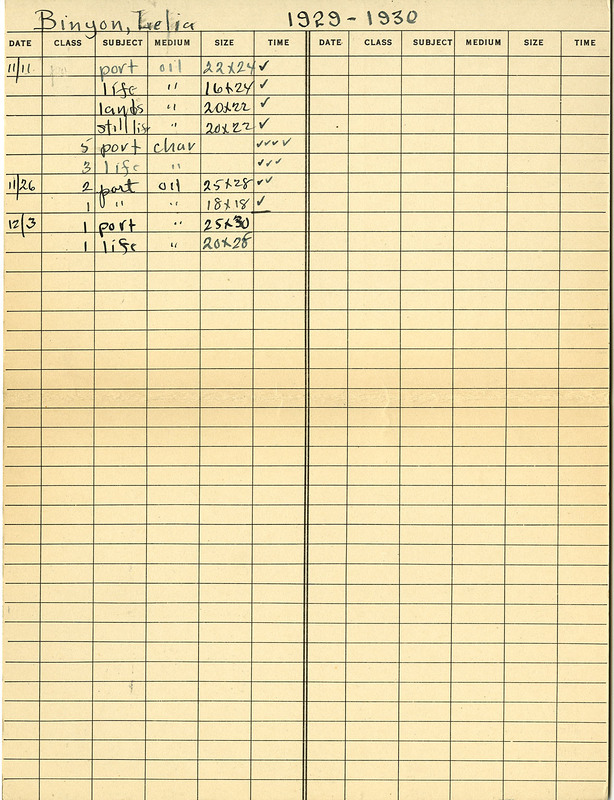 Binyon, Lelia 1929-1930
DATE CLASS SUBJECT MEDIUM SIZE TIME DATE CLASS SUBJECT MEDIUM SIZE TIME
11/11 port oil 22x24 ✓
life " 16x24 ✓
lands " 20x22 ✓
still life " 20x22 ✓
5 port char ✓✓✓✓
3 life " ✓✓✓
11/26 2 port oil 25x28 ✓✓
1 " " 18x18 ✓
12/3 1 port " 25x30
1 life " 20x28